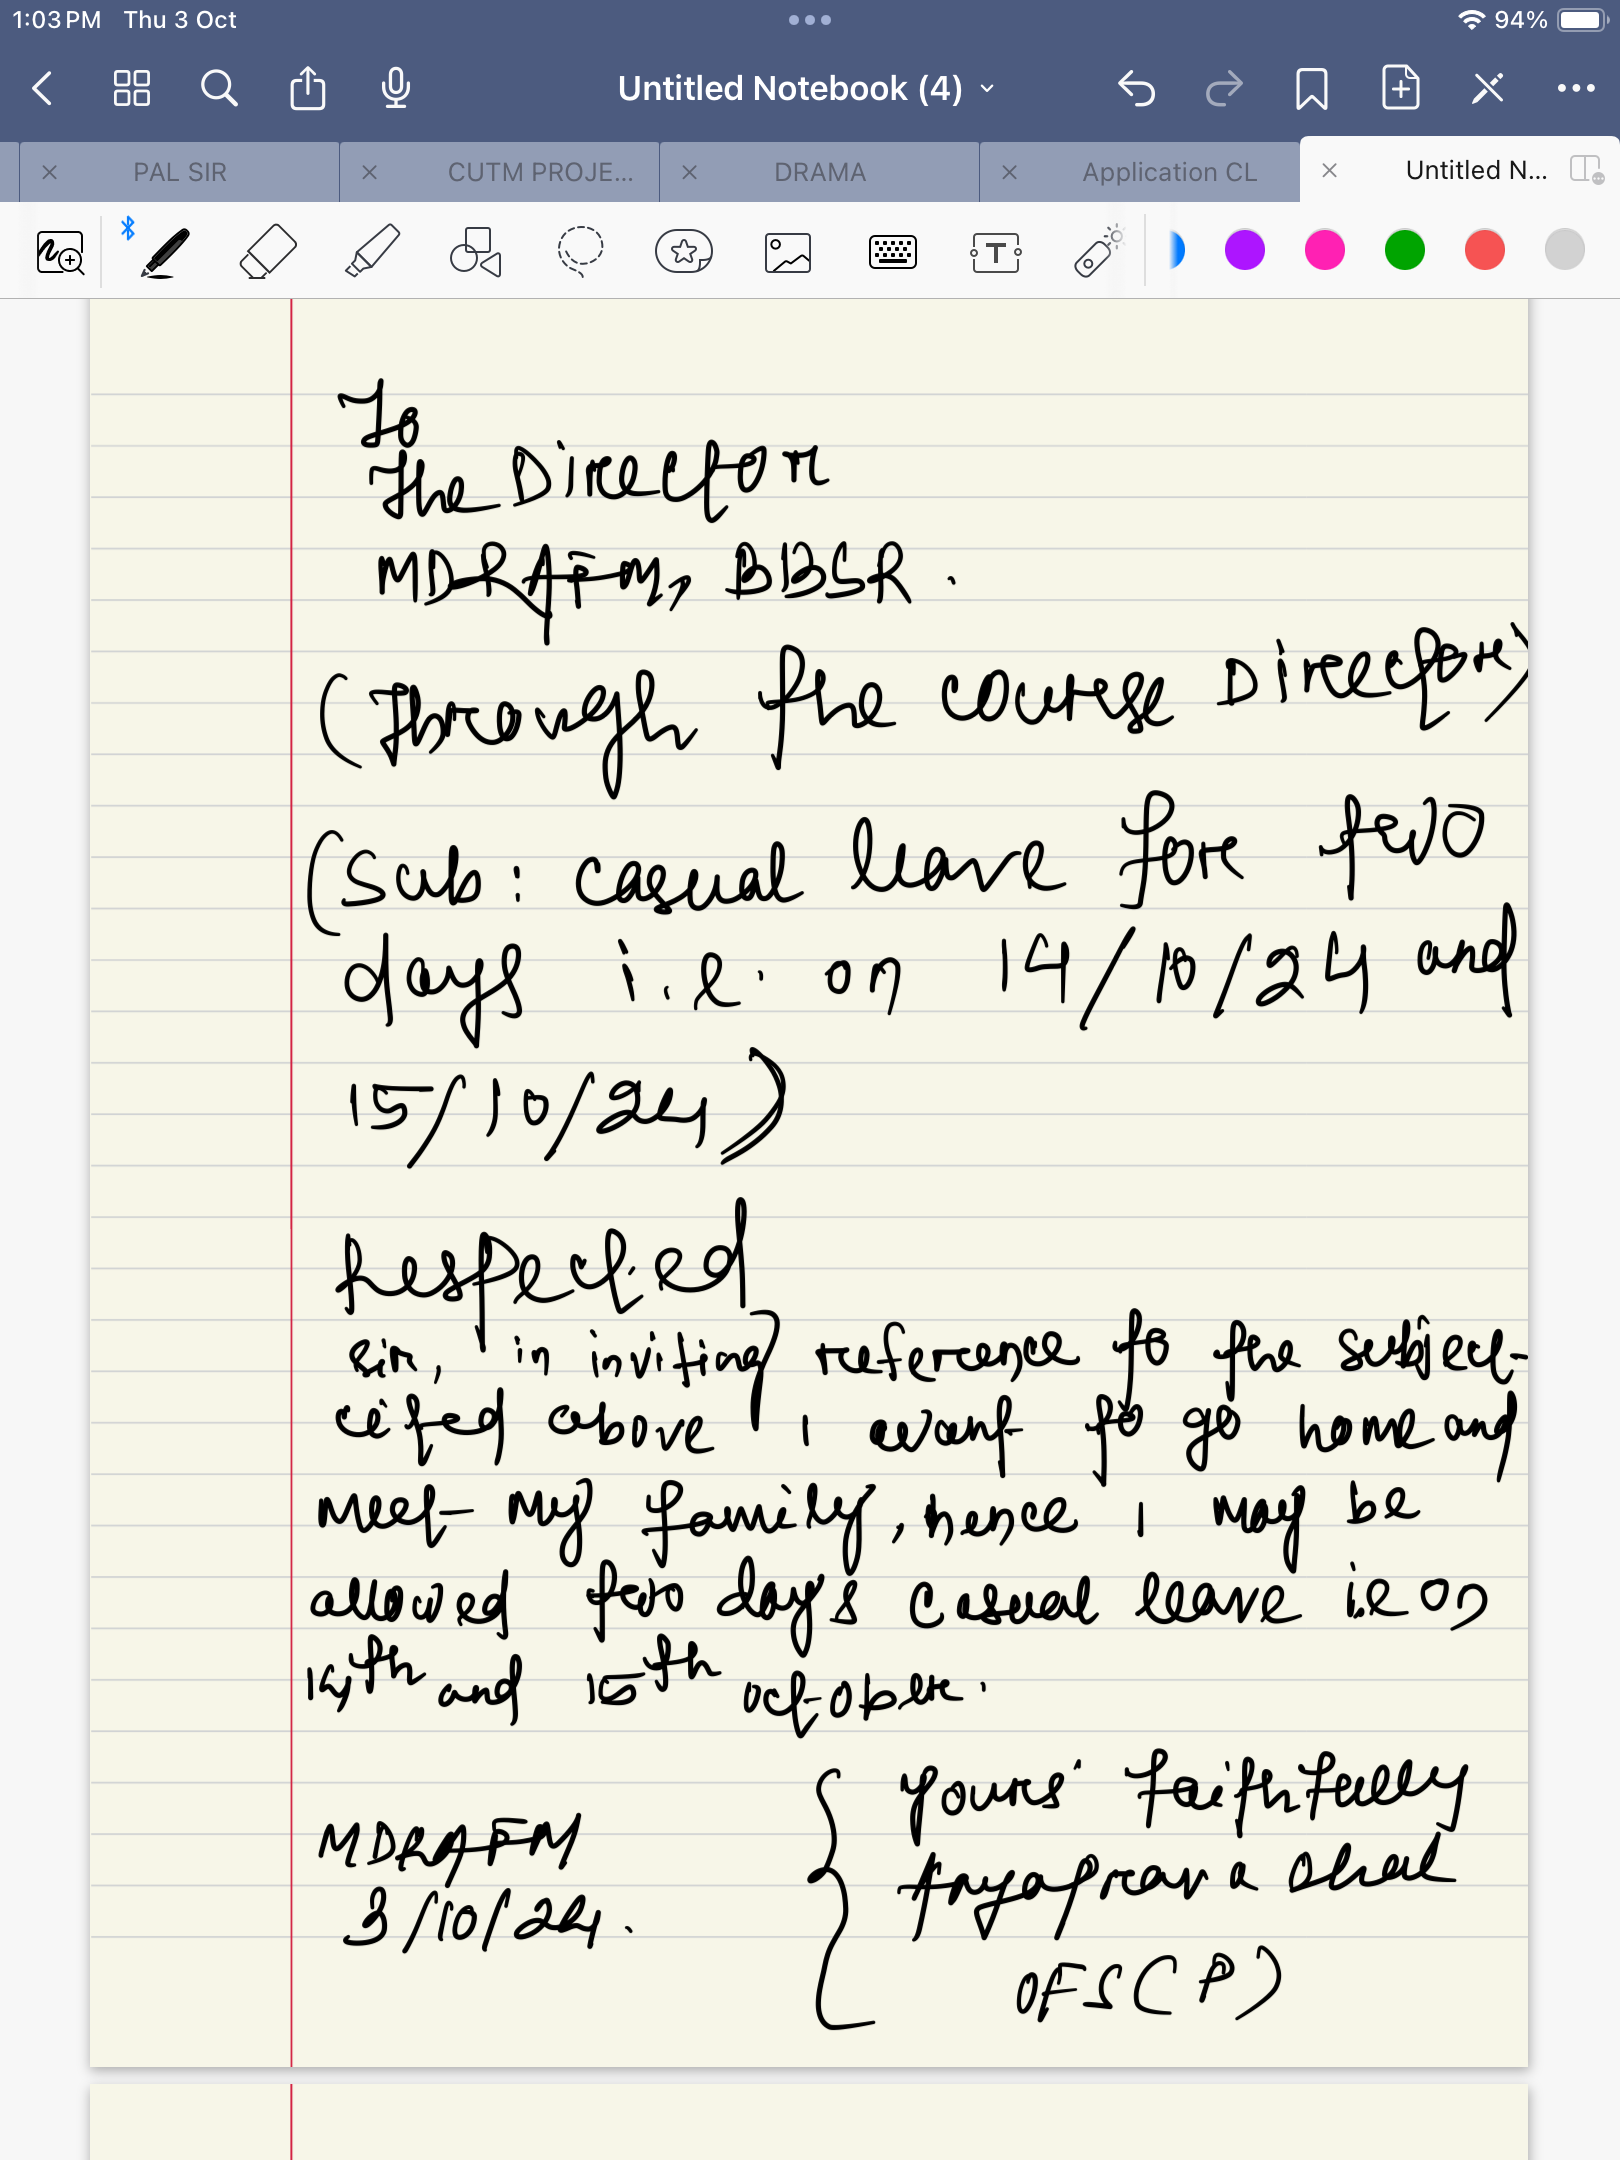 1:03 PM Thu 3 Oct
94%
Untitled Notebook (4)
PAL SIR
CUTM PROJE...
DRAMA
Application CL
Untitled N...
T
To
The Director
MDRAFM, BBSR.
(Through the course Director)
(Sub: casual leave for two
days i.e. on 14/10/24 and
15/10/24)
Respected
Sir, in inviting reference to the subject
cited above I want to go home and
meet my family, hence I may be
allowed two day's casual leave i.e on
14th and 15th october.
MDRAFM
3/10/24.
Yours' faithfully
OFS (P)